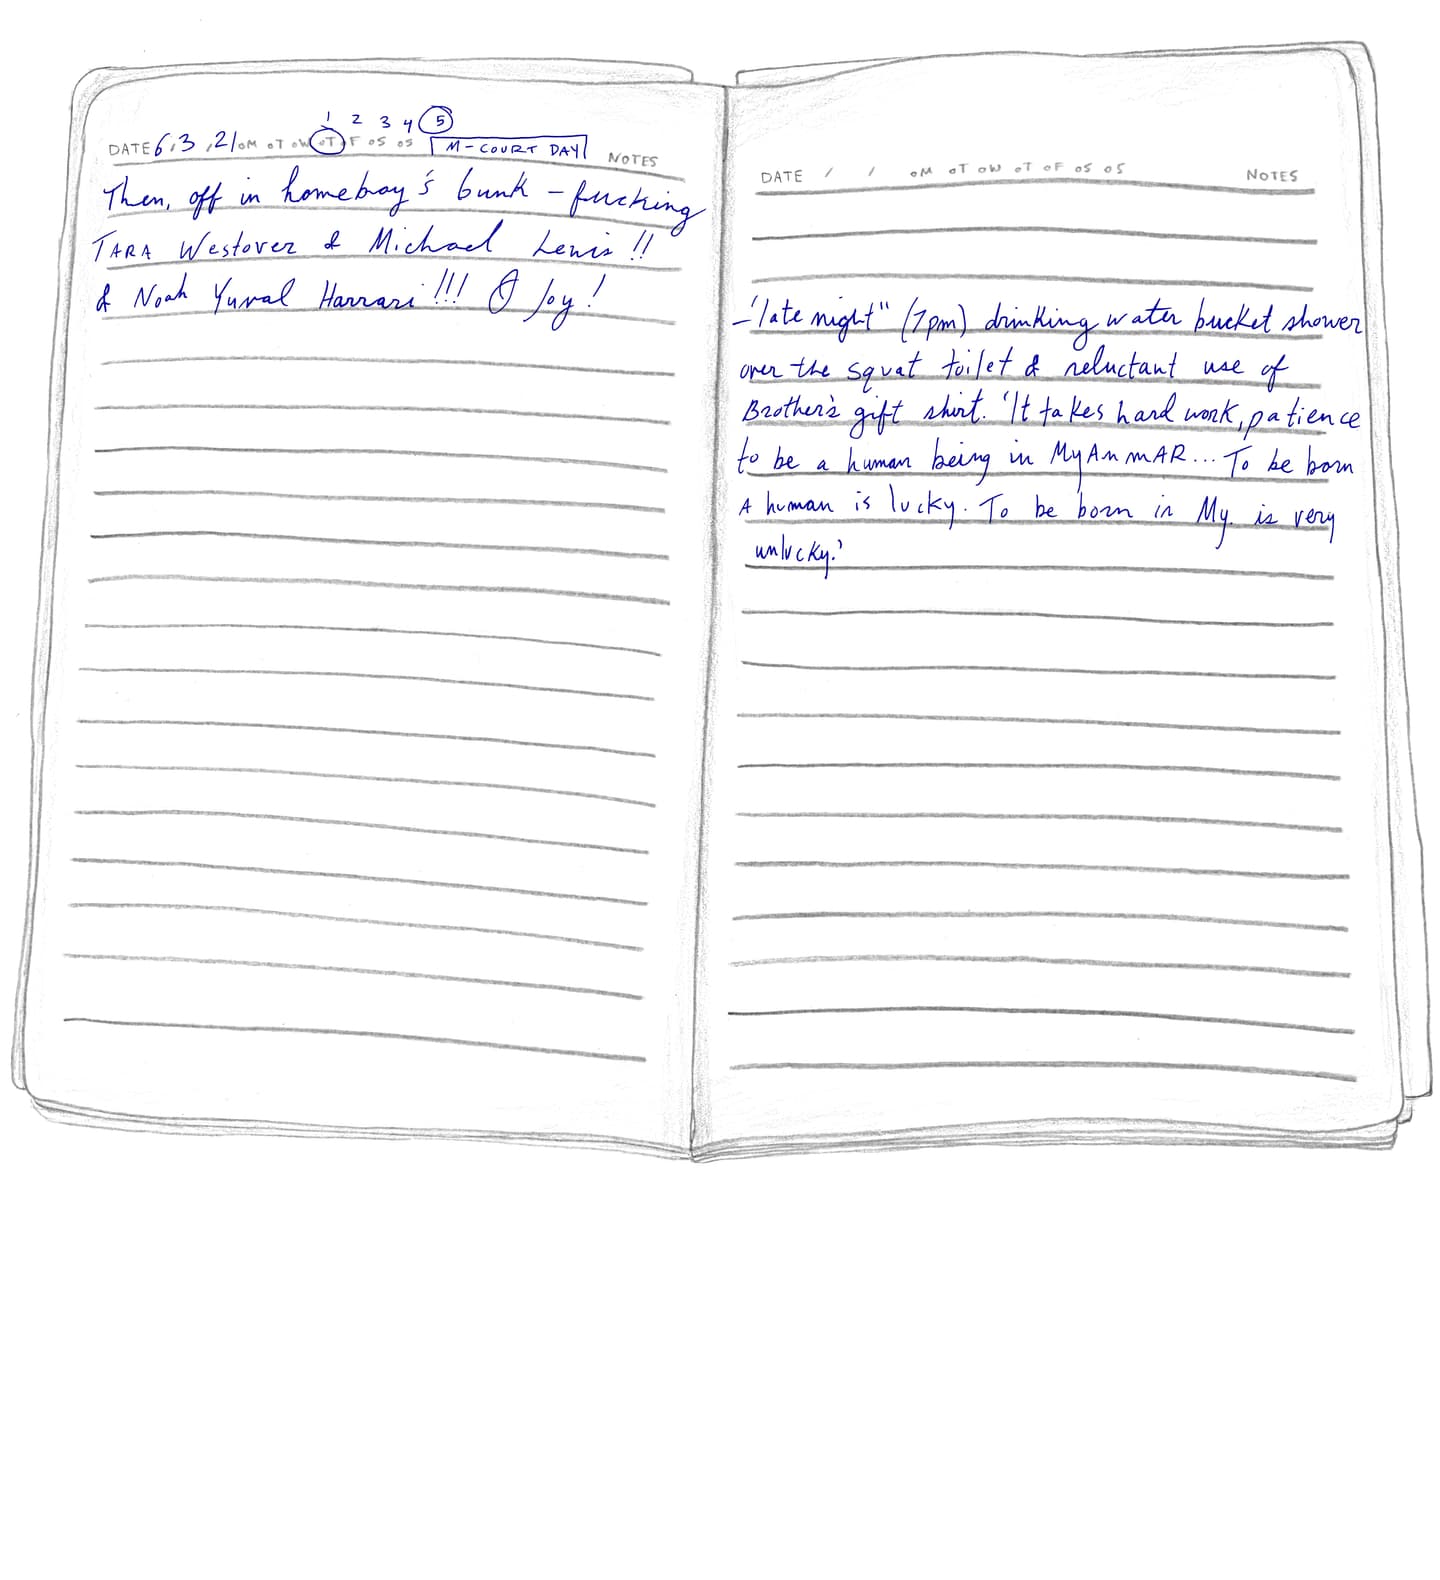 1 2 3 4 5
DATE 6,3,21 M T W T F S S M-COURT DAY NOTES
Then, off in homebray's bunk – fucking
TARA Westover & Michael Lewis!!
& Noah Yuval Harrari!!! O Joy!
DATE / / M T W T F S S NOTES
– "late night" (7pm) drinking water bucket shower
over the squat toilet & reluctant use of
Brother's gift shirt. 'It takes hard work, patience
to be a human being in MyAnmAR... To be born
A human is lucky. To be born in My. is very
unlucky.'